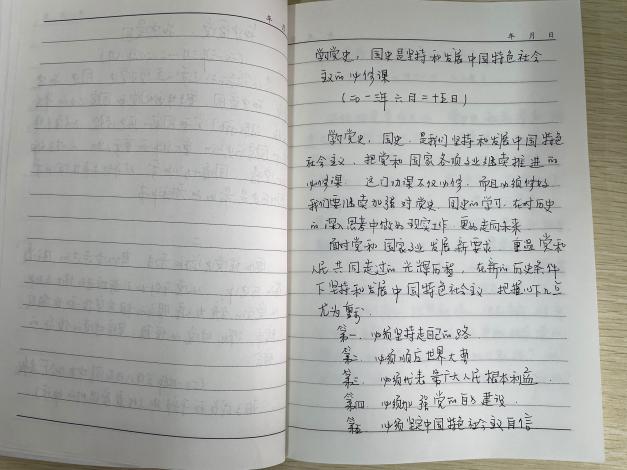 年 月
年 月 日
学党史、国史是坚持和发展中国特色社会
主义的必修课
（二〇一三年六月二十五日）
学习党史、国史，是我们坚持和发展中国特色
社会主义、把党和国家各项事业继续推进的
必修课。这门功课不仅必修，而且必须修好。
我们要继续加强对党史、国史的学习，在对历史
的深入思考中做好现实工作，更好走向未来。
面对党和国家事业发展新要求，重温党和
人民共同走过的光辉历程，在新的历史条件
下坚持和发展中国特色社会主义，把握以下几点
尤为重要。
第一、必须坚持走自己的路
第二、必须顺应世界大势
第三、必须代表最广大人民根本利益。
第四、必须加强党的自身建设。
第五、必须坚定中国特色社会主义自信